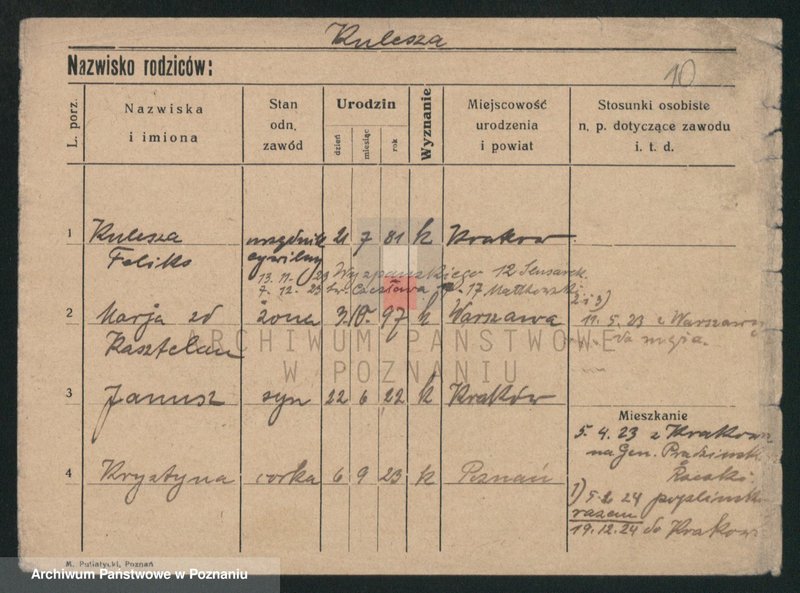 Kulesza
Nazwisko rodziców:
10
L. porz.
Nazwiska
i imiona
Stan
odn.
zawód
Urodzin
dzień
miesiąc
rok
Wyznanie
Miejscowość
urodzenia
i powiat
Stosunki osobiste
n. p. dotyczące zawodu
i. t. d.
1 Kulesza urzędnik 21 7 81 k Krakow
Feliks cywilny
13. 11. 23 Wyspiańskiego 12
7. 12. 23 Św. Czesława 17
2 i 3)
2 Marja zd żona 3. 10. 97 k Warszawa 19. 5. 23 z Warszawy
Kasztelan do męża.
ARCHIWUM PAŃSTWOWE
W POZNANIU
3 Janusz syn 22 6 22 k Kraków
Mieszkanie
5. 4. 23 z Krakowa
na Gen.
4 Krystyna corka 6 9 23 k Poznań
1) 24
razem
19. 12. 24 do Krakow
M. Putiatycki, Poznań
Archiwum Państwowe w Poznaniu